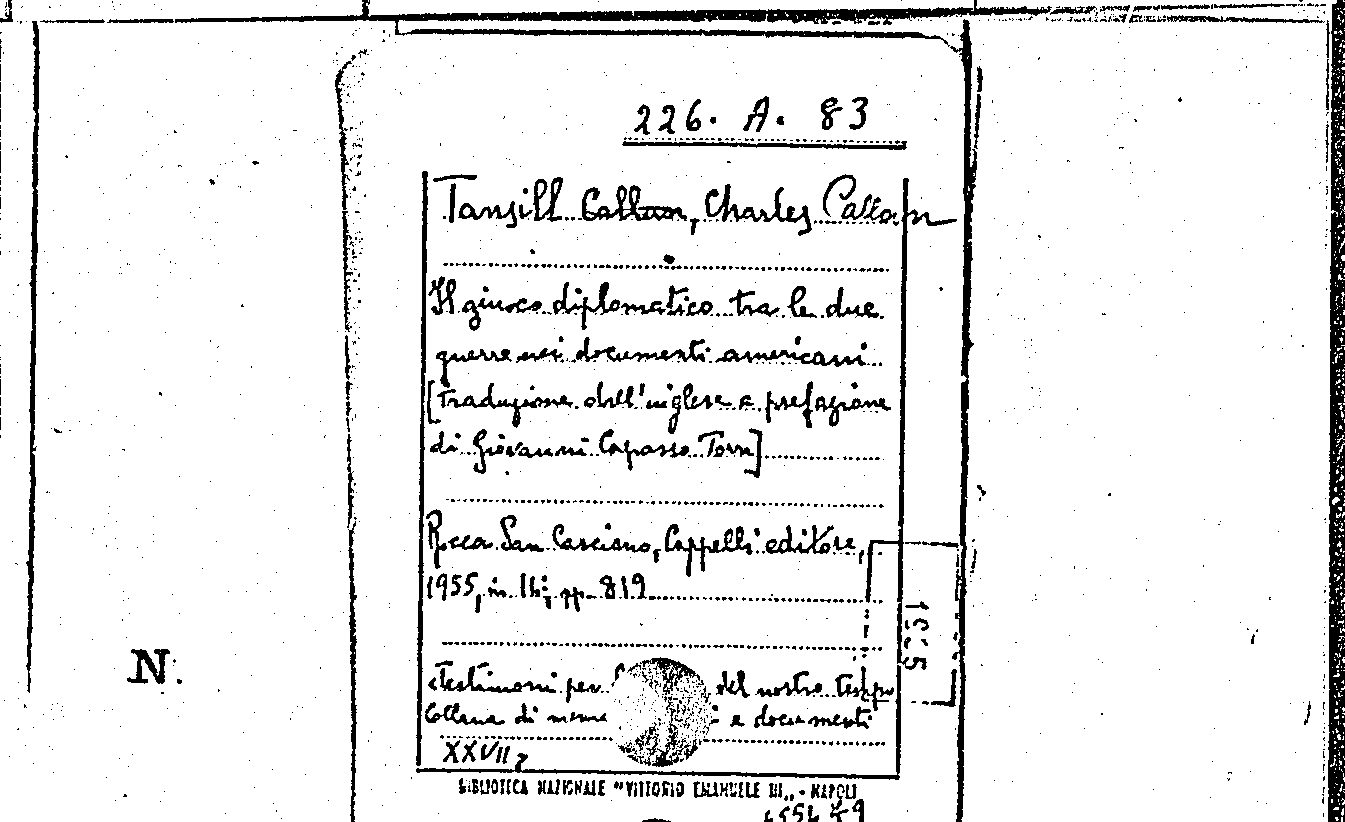 226. A. 83
Tansill Callan, Charles Callan
Il giuoco diplomatico tra le due
guerre nei documenti americani
[traduzione dall'inglese e prefazione
di Giovanni Capasso Torre]
Rocca San Casciano, Cappelli editore,
1955, in 16°, pp. 819
Testimoni per del nostro tempo
Collana di e documenti
XXVII
BIBLIOTECA NAZIONALE "VITTORIO EMANUELE III„ - NAPOLI
N.